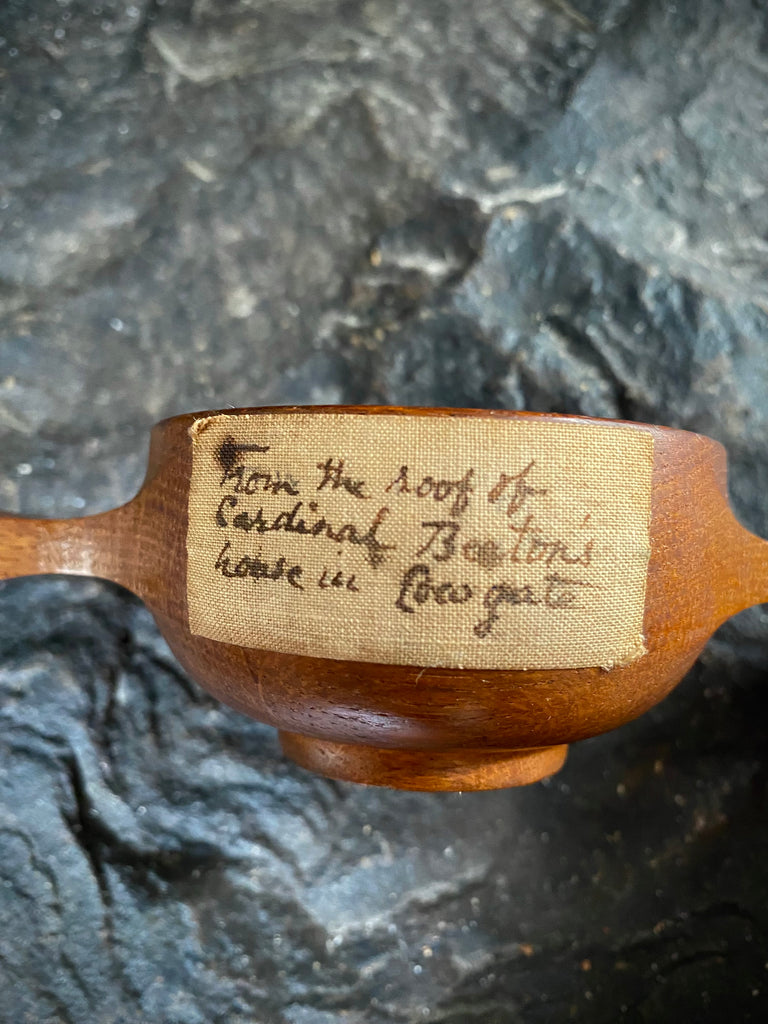 From the roof of
Cardinal Beeton's
house in Cowgate